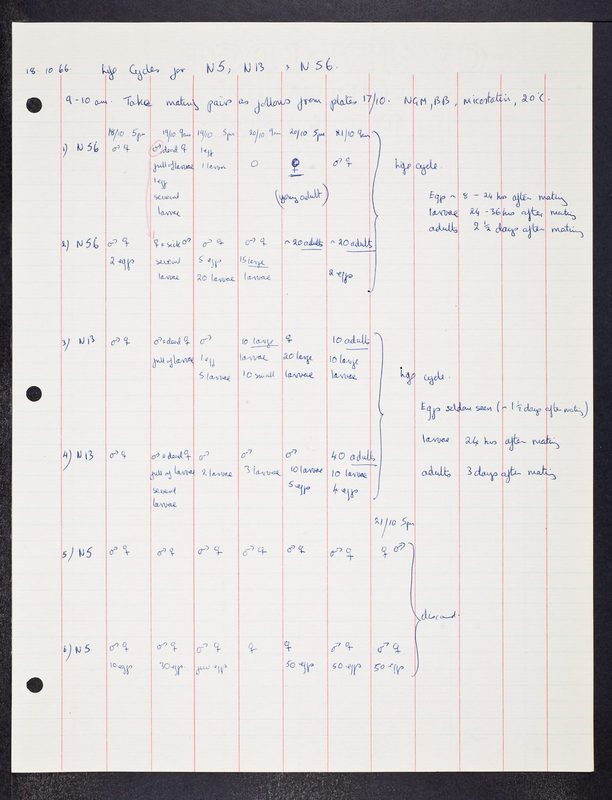 18.10.66. Life Cycles for N5, N13 & N56.
9-10 am. Take mating pairs as follows from plates 17/10. NGM, BB, micostatin, 20°C.
18/10 5pm 19/10 9am 19/10 5pm 20/10 9am 20/10 5pm 21/10 9am
1) N56 ♂ ♀ ♂ dead ♀ 1 egg ♂ ♀ Life cycle.
full of larvae 1 larva 0 ♀
1 egg
several (young adult) Eggs ~ 8 - 24 hrs after mating
larvae larvae 24 - 36 hrs after mating
adults 2 ½ days after mating
2) N56 ♂ ♀ ♀ + sick ♂ ♂ ♀ ♂ ♀ ~ 20 adults ~ 20 adults
2 eggs several 5 eggs 15 large
larvae 20 larvae larvae 2 eggs
3) N13 ♂ ♀ ♂ + dead ♀ ♂ 10 large ♀ 10 adults
full of larvae 1 egg larvae 20 large 10 large
5 larvae 10 small larvae larvae Life cycle.
Eggs seldom seen (~ 1 ½ days after mating)
larvae 24 hrs after mating
4) N13 ♂ ♀ ♂ + dead ♀ ♂ ♂ ♂ 40 adults
full of larvae 2 larvae 3 larvae 10 larvae 10 larvae adults 3 days after mating
several 5 eggs 4 eggs
larvae
21/10 5pm
5) N5 ♂ ♀ ♂ ♀ ♂ ♀ ♂ ♀ ♂ ♀ ♂ ♀ ♀ ♂
discard.
6) N5 ♂ ♀ ♂ ♀ ♂ ♀ ♀ ♀ ♂ ♀ ♂ ♀
10 eggs 30 eggs few eggs 50 eggs 50 eggs 50 eggs